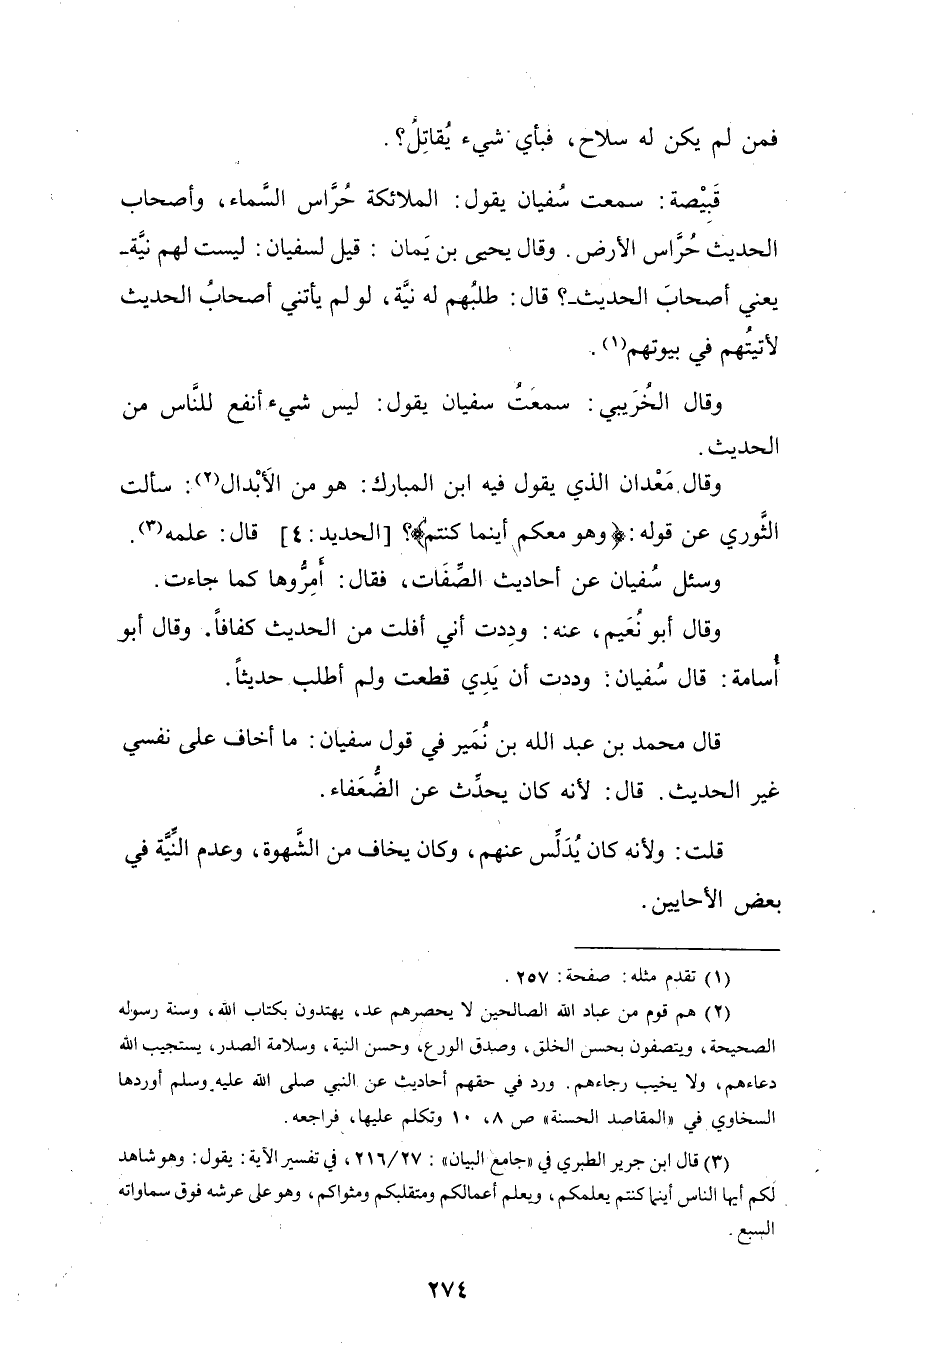 فمن لم يكن له سلاح، فبأي شيء يُقاتِلُ؟.
قَبِيْصة: سمعت سُفيان يقول: الملائكة حُرَّاس السَّماء، وأصحاب
الحديث حُرَّاس الأرض. وقال يحيى بن يَمان : قيل لسفيان: ليست لهم نيَّة-
يعني أصحابَ الحديث-؟ قال: طلبُهم له نيَّة، لو لم يأتني أصحابُ الحديث
لأتيتُهم في بيوتهم(١).
وقال الخُرَيبي: سمعَتُ سفيان يقول: ليس شيء أنفع للنَّاس من
الحديث.
وقال مَعْدان الذي يقول فيه ابن المبارك: هو من الأَبْدال(٢): سألت
الثَّوري عن قوله: ﴿وهو معكم أينما كنتم﴾؟ [الحديد: ٤] قال: علمه(٣).
وسئل سُفيان عن أحاديث الصِّفَات، فقال: أَمِرُّوها كما جاءت.
وقال أبو نُعَيم، عنه: ودِدت أني أفلت من الحديث كفافاً. وقال أبو
أُسامة: قال سُفيان: وددت أن يَدِي قطعت ولم أطلب حديثاً.
قال محمد بن عبد الله بن نُمَير في قول سفيان: ما أخاف على نفسي
غير الحديث. قال: لأنه كان يحدِّث عن الضُّعَفاء.
قلت: ولأنه كان يُدَلِّس عنهم، وكان يخاف من الشَّهوة، وعدم النِّيَّة في
بعض الأحايين.
(١) تقدم مثله: صفحة: ٢٥٧ .
(٢) هم قوم من عباد الله الصالحين لا يحصرهم عد، يهتدون بكتاب الله، وسنة رسوله
الصحيحة، ويتصفون بحسن الخلق، وصدق الورع، وحسن النية، وسلامة الصدر، يستجيب الله
دعاءهم، ولا يخيب رجاءهم. ورد في حقهم أحاديث عن النبي صلى الله عليه وسلم أوردها
السخاوي في «المقاصد الحسنة» ص ٨، ١٠ وتكلم عليها، فراجعه.
(٣) قال ابن جرير الطبري في «جامع البيان» : ٢١٦/٢٧، في تفسير الآية: يقول: وهو شاهد
لكم أيها الناس أينما كنتم يعلمكم، ويعلم أعمالكم ومتقلبكم ومثواكم، وهو على عرشه فوق سماواته
السبع.
٢٧٤